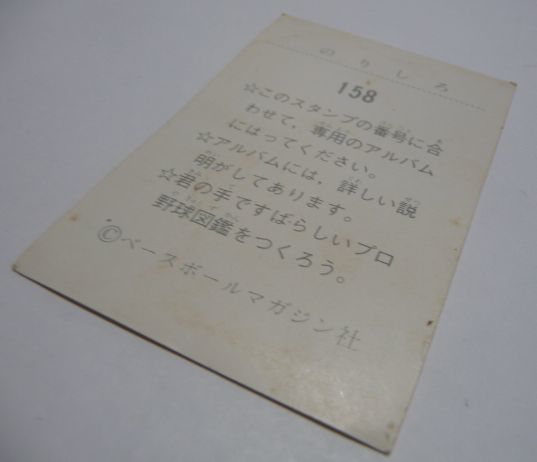 のりしろ
158
☆このスタンプの番号に合
わせて、専用のアルバム
にはってください。
☆アルバムには、詳しい説
明がしてあります。
☆君の手ですばらしいプロ
野球図鑑をつくろう。
©ベースボールマガジン社